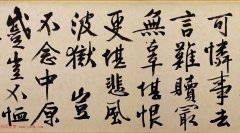 可憐事去
言難贖最
無辜堪恨
更堪悲風
波獄豈
不念中原
蹙豈不恤